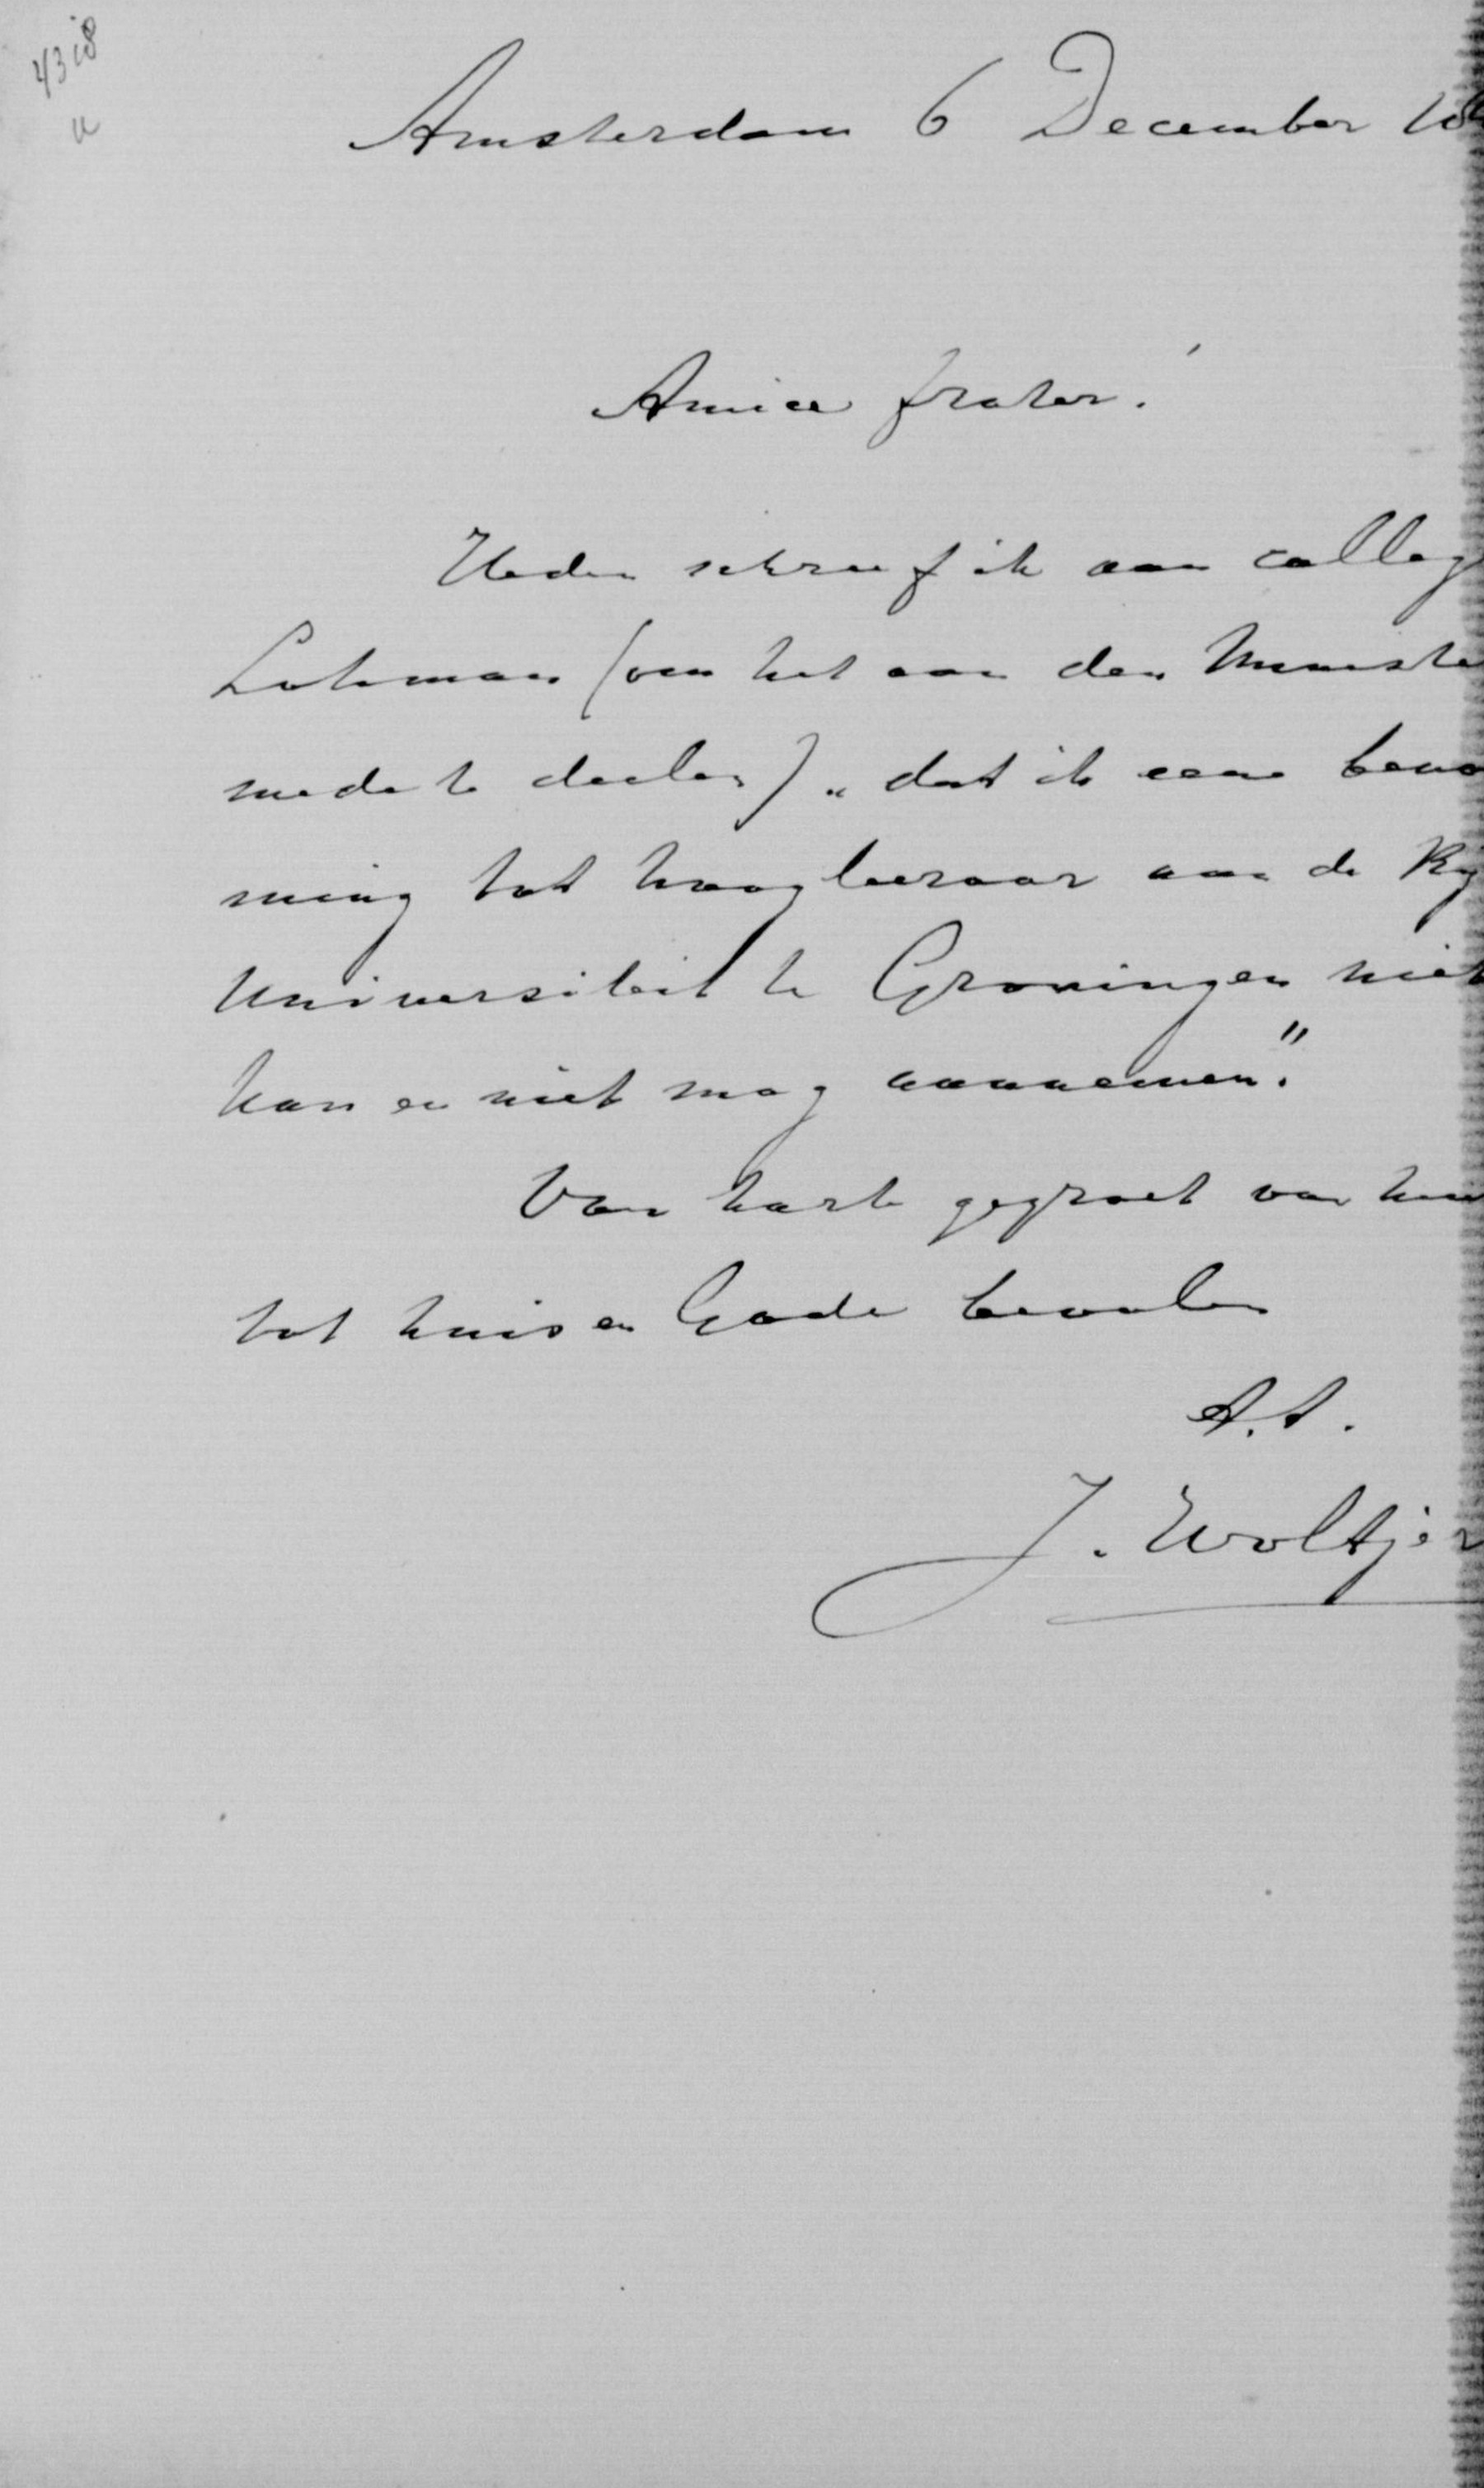 4318
a
Amsterdam 6 December 18
Amice frater!
Heden schreef ik aan colleg
Lohman (om het aan den Ministe
mede te deelen) „dat ik eene benoe
ming tot hoogleeraar aan de Rij
Universiteit te Groningen niet
kan en niet mag aannemen."
Van harte gegroet van huis
tot huis en Gode bevolen
t.t.
J. Woltjer